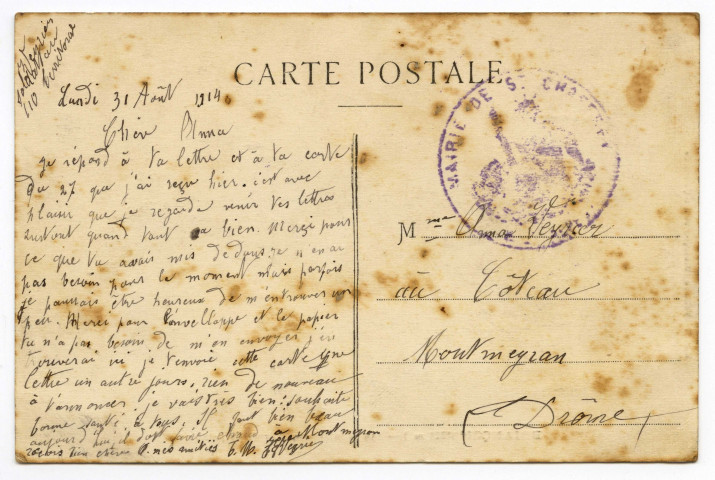 CARTE POSTALE
Lundi 31 Août 1914
Chère Anna
Je répond à ta lettre et à ta carte
du 27 que j'ai reçu hier. c'est avec
plaisir que je regarde venir tes lettres
surtout quand tout va bien. Merci pour
ce que tu avais mis dedans je n'en ai
pas besoin pour le moment mais parfois
je pourrais être heureux de m'entrouver un
peu. Merci pour l'envelloppe et le papier
tu n'a pas besoin de m'en envoyer j'en
trouverai ici je t'envoie cette carte une
lettre un autre jours, rien de nouveau
à t'annoncer je vais très bien. souhaite
bonne santé à tous. Il fait bien beau
aujourd'hui
MAIRIE DE St
Mme Anna Veyrier
au Côteau
Montmeyran
(Drôme)